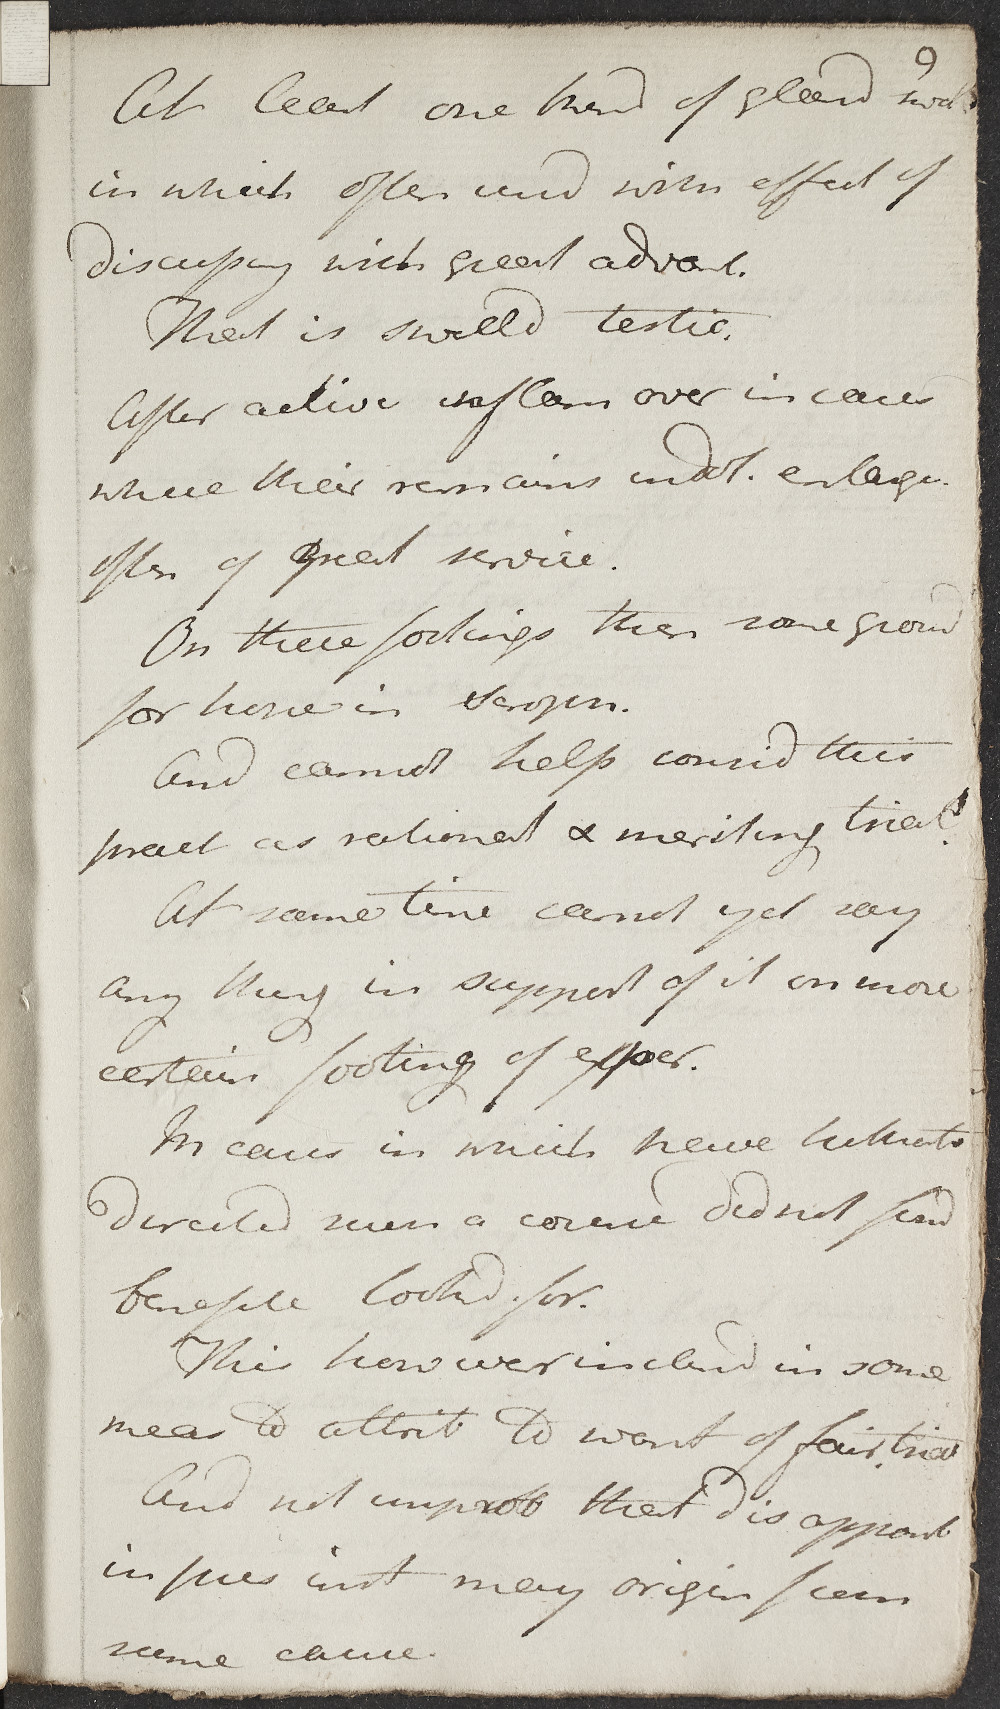 9
At least one kind of gland swell
in which often used with effect of
discussing with great advant.
That is swelld testic.
After active inflam over in cases
where their remains indol. enlarge.
often of great service.
On these footings then some ground
for hope in scroph.
And cannot help considd this
pract as rational & meriting trial.
At same time cannot yet say
any thing in support of it on more
certain footing of exper.
In cases in which have hitherto
directed such a course did not find
benefite lookd for.
This however inclind in some
meas to attrib to want of fair trial
And not improb that disappoint
in pres inst may origin from
same cause.